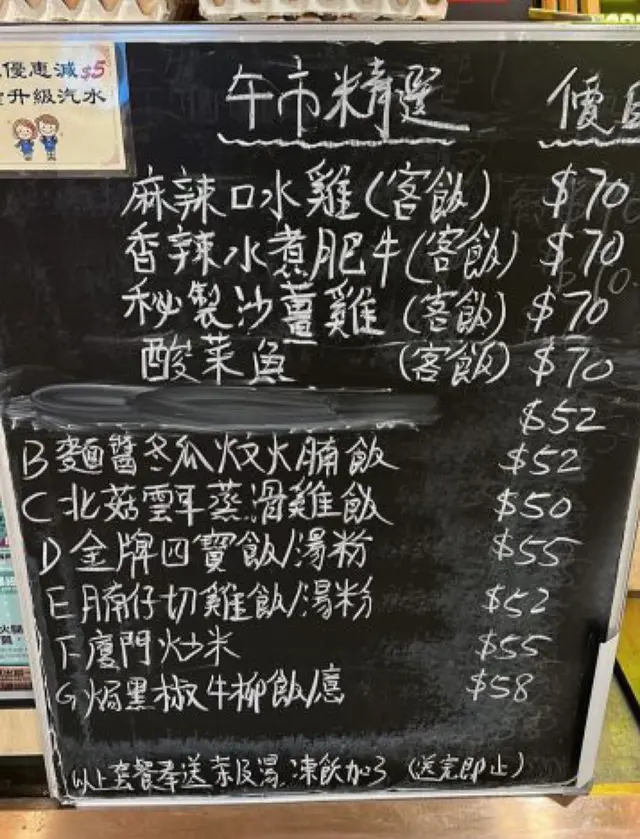 優惠減$5
升級汽水
午市精選 價
麻辣口水雞(客飯) $70
香辣水煮肥牛(客飯) $70
秘製沙薑雞(客飯) $70
酸菜魚 (客飯) $70
$52
B麵醬冬瓜炆火腩飯 $52
C北菇雲耳蒸滑雞飯 $50
D金牌四寶飯/湯粉 $55
E腩仔切雞飯/湯粉 $52
F廈門炒米 $55
G焗黑椒牛柳飯/意 $58
以上套餐奉送茶及湯,凍飲加3 (送完即止)